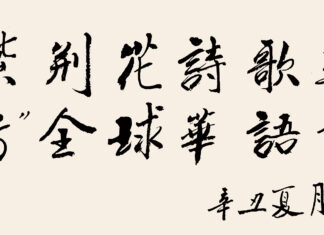 紫荆花詩歌
”全球華語
辛丑夏月